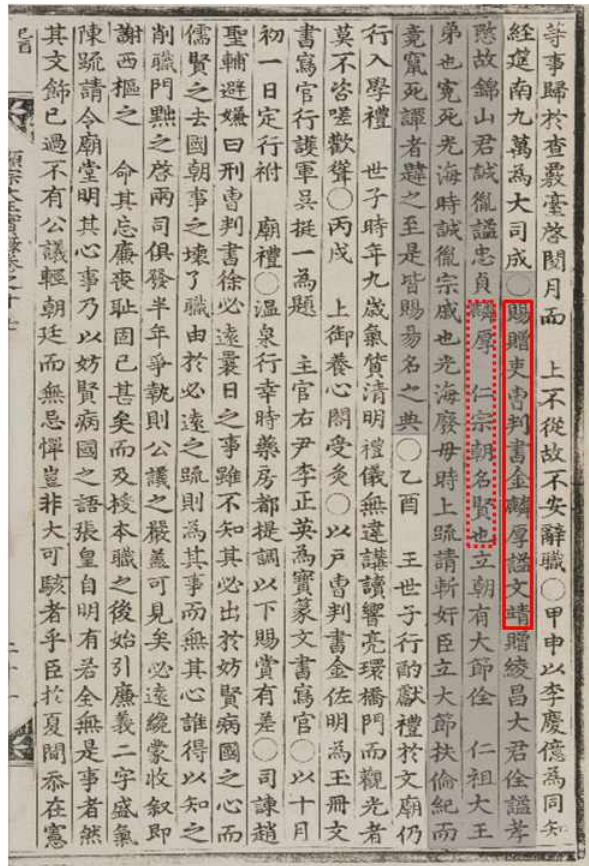 等事歸於查覈臺啓閱月而　上不從故不安辭職○甲申以李慶億為同知
經筵南九萬為大司成○賜贈吏曹判書金麟厚諡文靖贈綾昌大君佺諡孝
愍故錦山君誠胤諡忠貞麟厚　仁宗朝名賢也立朝有大節佺　仁祖大王
弟也寃死光海時誠胤宗戚也光海廢母時上疏請斬奸臣立大節扶倫紀而
竟竄死譚者韙之至是皆賜易名之典○乙酉　王世子行酌獻禮於文廟仍
行入學禮　世子時年九歲氣質清明禮儀無違講讀響亮環橋門而觀光者
莫不咨嗟歡聳○丙戌　上御養心閤受灸○以戶曹判書金佐明為玉冊文
書寫官行護軍吳挺一為題　主官右尹李正英為寶篆文書寫官○以十月
初一日定行祔　廟禮○溫泉行幸時藥房都提調以下賜賞有差○司諫趙
聖輔避嫌曰刑曹判書徐必遠曩日之事雖不知其必出於妨賢病國之心而
儒賢之去國朝事之壞了職由於必遠之疏則為其事而無其心誰得以知之
削職門黜之啓兩司俱發半年爭執則公議之嚴蓋可見矣必遠纔蒙收叙即
謝西樞之　命其忘廉喪恥固已甚矣而及授本職之後始引廉義二字盛氣
陳疏請令廟堂明其心事乃以妨賢病國之語張皇自明有若全無是事者然
其文飾已過不有公議輕朝廷而無忌憚豈非大可駭者乎臣於夏間忝在憲